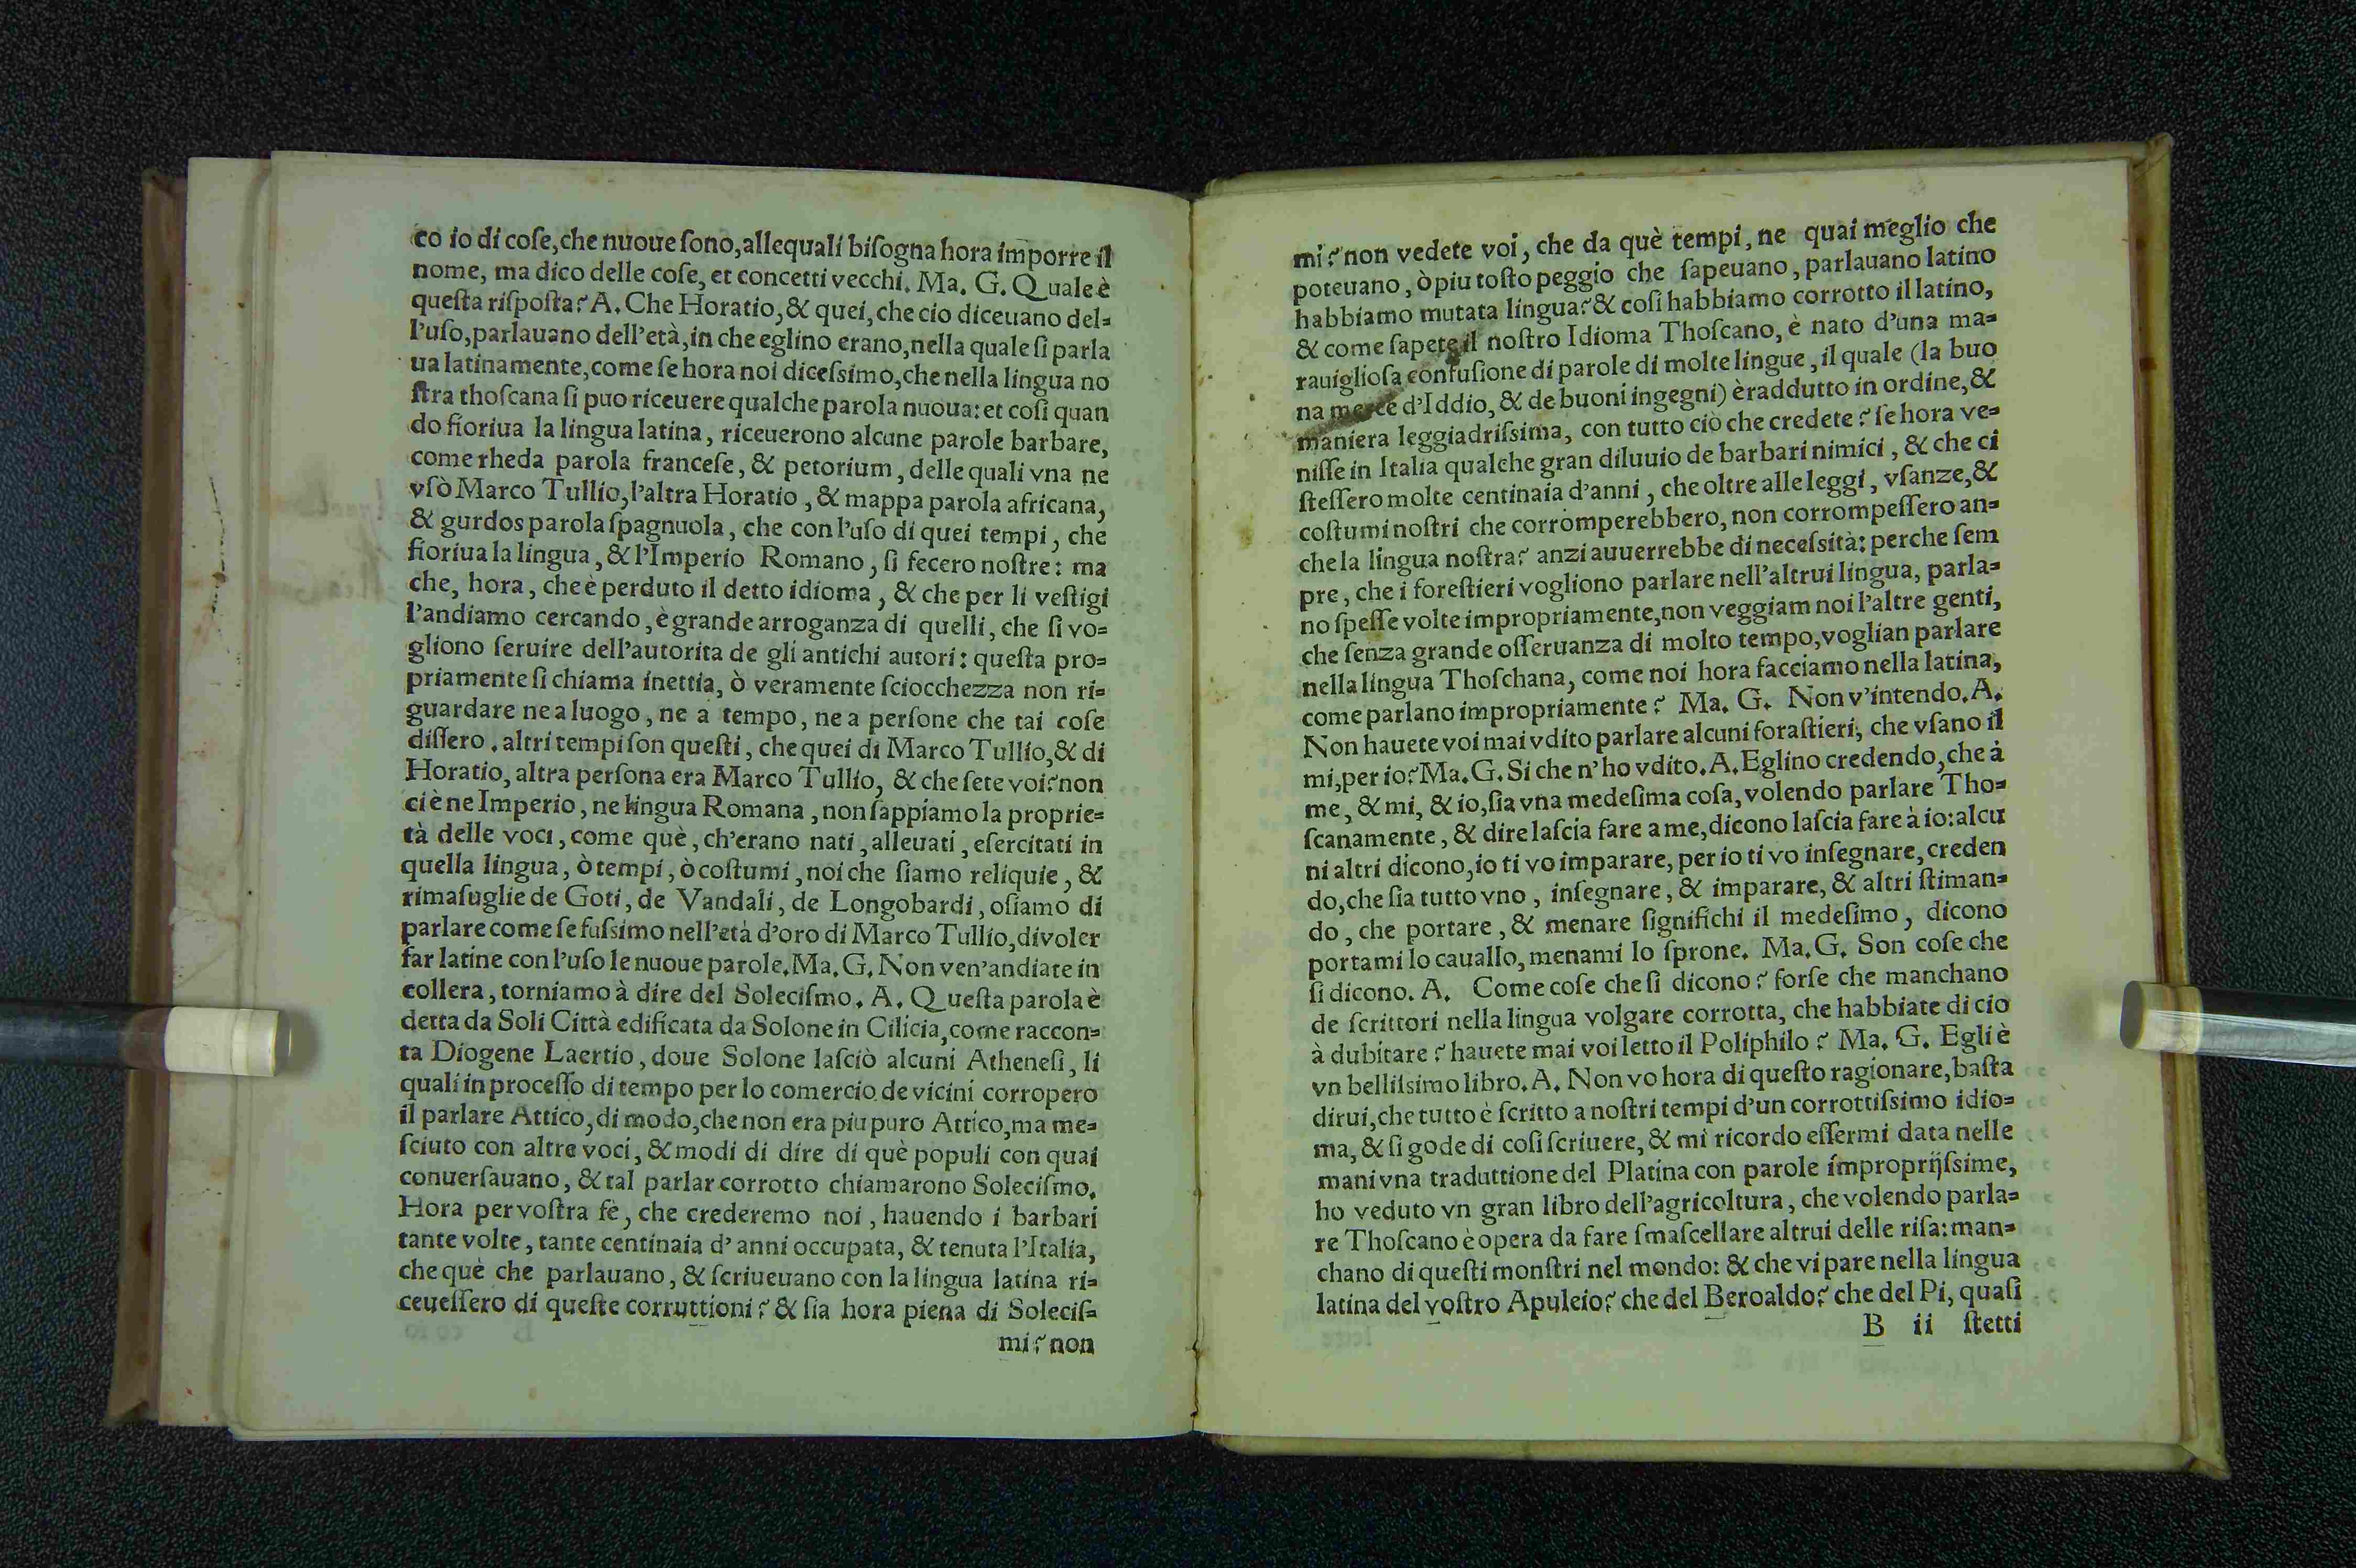 co io di coſe,che nuoue ſono,allequali biſogna hora imporre il
nome, ma dico delle coſe, et concetti vecchi. Ma. G. Quale è
queſta riſpoſta? A. Che Horatio,& quei,che cio diceuano del=
l'uſo,parlauano dell'età,in che eglino erano,nella quale ſi parla
ua latinamente,come ſe hora noi diceſsimo,che nella lingua no
ſtra thoſcana ſi puo riceuere qualche parola nuoua: et coſi quan
do fioriua la lingua latina, riceuerono alcune parole barbare,
come rheda parola franceſe, & petorium, delle quali vna ne
vſò Marco Tullio,l'altra Horatio, & mappa parola africana,
& gurdos parola ſpagnuola, che con l'uſo di quei tempi, che
fioriua la lingua, & l'Imperio Romano, ſi fecero noſtre: ma
che, hora, che è perduto il detto idioma, & che per li veſtigi
l'andiamo cercando, è grande arroganza di quelli, che ſi vo=
gliono ſeruire dell'autorita de gli antichi autori: queſta pro=
priamente ſi chiama inettia, ò veramente ſciocchezza non ri=
guardare ne a luogo, ne a tempo, ne a perſone che tai coſe
diſſero. altri tempi ſon queſti, che quei di Marco Tullio,& di
Horatio, altra perſona era Marco Tullio, & che ſete voi? non
ci è ne Imperio, ne lingua Romana, non ſappiamo la proprie=
tà delle voci, come què, ch'erano nati, alleuati, eſercitati in
quella lingua, ò tempi, ò coſtumi, noi che ſiamo reliquie, &
rimaſuglie de Goti, de Vandali, de Longobardi, oſiamo di
parlare come ſe fuſsimo nell'età d'oro di Marco Tullio,di voler
far latine con l'uſo le nuoue parole. Ma. G. Non ven'andiate in
collera, torniamo à dire del Soleciſmo. A. Queſta parola è
detta da Soli Città edificata da Solone in Cilicia,come raccon=
ta Diogene Laertio, doue Solone laſciò alcuni Atheneſi, li
quali in proceſſo di tempo per lo comercio de vicini corropero
il parlare Attico,di modo,che non era piu puro Attico,ma me=
ſciuto con altre voci, & modi di dire di què populi con quai
conuerſauano, & tal parlar corrotto chiamarono Soleciſmo.
Hora per voſtra fè, che crederemo noi, hauendo i barbari
tante volte, tante centinaia d'anni occupata, & tenuta l'Italia,
che què che parlauano, & ſcriueuano con la lingua latina ri=
ceueſſero di queſte corruttioni? & ſia hora piena di Soleciſ=
mi? non
mi? non vedete voi, che da què tempi, ne quai meglio che
poteuano, ò piu toſto peggio che ſapeuano, parlauano latino
habbiamo mutata lingua? & coſi habbiamo corrotto il latino,
& come ſapete il noſtro Idioma Thoſcano, è nato d'una ma=
rauiglioſa confuſione di parole di molte lingue, il quale (la buo
na merce d'Iddio, & de buoni ingegni) è raddutto in ordine,&
maniera leggiadriſsima, con tutto ciò che credete? ſe hora ve=
niſſe in Italia qualche gran diluuio de barbari nimici, & che ci
ſteſſero molte centinaia d'anni, che oltre alle leggi, vſanze,&
coſtumi noſtri che corromperebbero, non corrompeſſero an=
che la lingua noſtra? anzi auuerrebbe di neceſsità: perche ſem
pre, che i foreſtieri vogliono parlare nell'altrui lingua, parla=
no ſpeſſe volte impropriamente,non veggiam noi l'altre genti,
che ſenza grande oſſeruanza di molto tempo,voglian parlare
nella lingua Thoſchana, come noi hora facciamo nella latina,
come parlano impropriamente? Ma. G. Non v'intendo. A.
Non hauete voi mai vdito parlare alcuni foraſtieri, che vſano il
mi,per io? Ma. G. Si che n'ho vdito. A. Eglino credendo,che à
me, & mi, & io,ſia vna medeſima coſa, volendo parlare Tho=
ſcanamente, & dire laſcia fare a me,dicono laſcia fare à io: alcu
ni altri dicono,io ti vo imparare, per io ti vo inſegnare, creden
do,che ſia tutto vno, inſegnare, & imparare, & altri ſtiman=
do, che portare, & menare ſignifichi il medeſimo, dicono
portami lo cauallo, menami lo ſprone. Ma. G. Son coſe che
ſi dicono. A. Come coſe che ſi dicono? forſe che manchano
de ſcrittori nella lingua volgare corrotta, che habbiate di cio
à dubitare? hauete mai voi letto il Poliphilo? Ma. G. Egli è
vn belliſsimo libro. A. Non vo hora di queſto ragionare, baſta
dirui,che tutto è ſcritto a noſtri tempi d'un corrottiſsimo idio=
ma, & ſi gode di coſi ſcriuere, & mi ricordo eſſermi data nelle
mani vna traduttione del Platina con parole improprijſsime,
ho veduto vn gran libro dell'agricoltura, che volendo parla=
re Thoſcano è opera da fare ſmaſcellare altrui delle riſa: man=
chano di queſti monſtri nel mondo: & che vi pare nella lingua
latina del voſtro Apuleio? che del Beroaldo? che del Pi, quaſi
B ii ſtetti